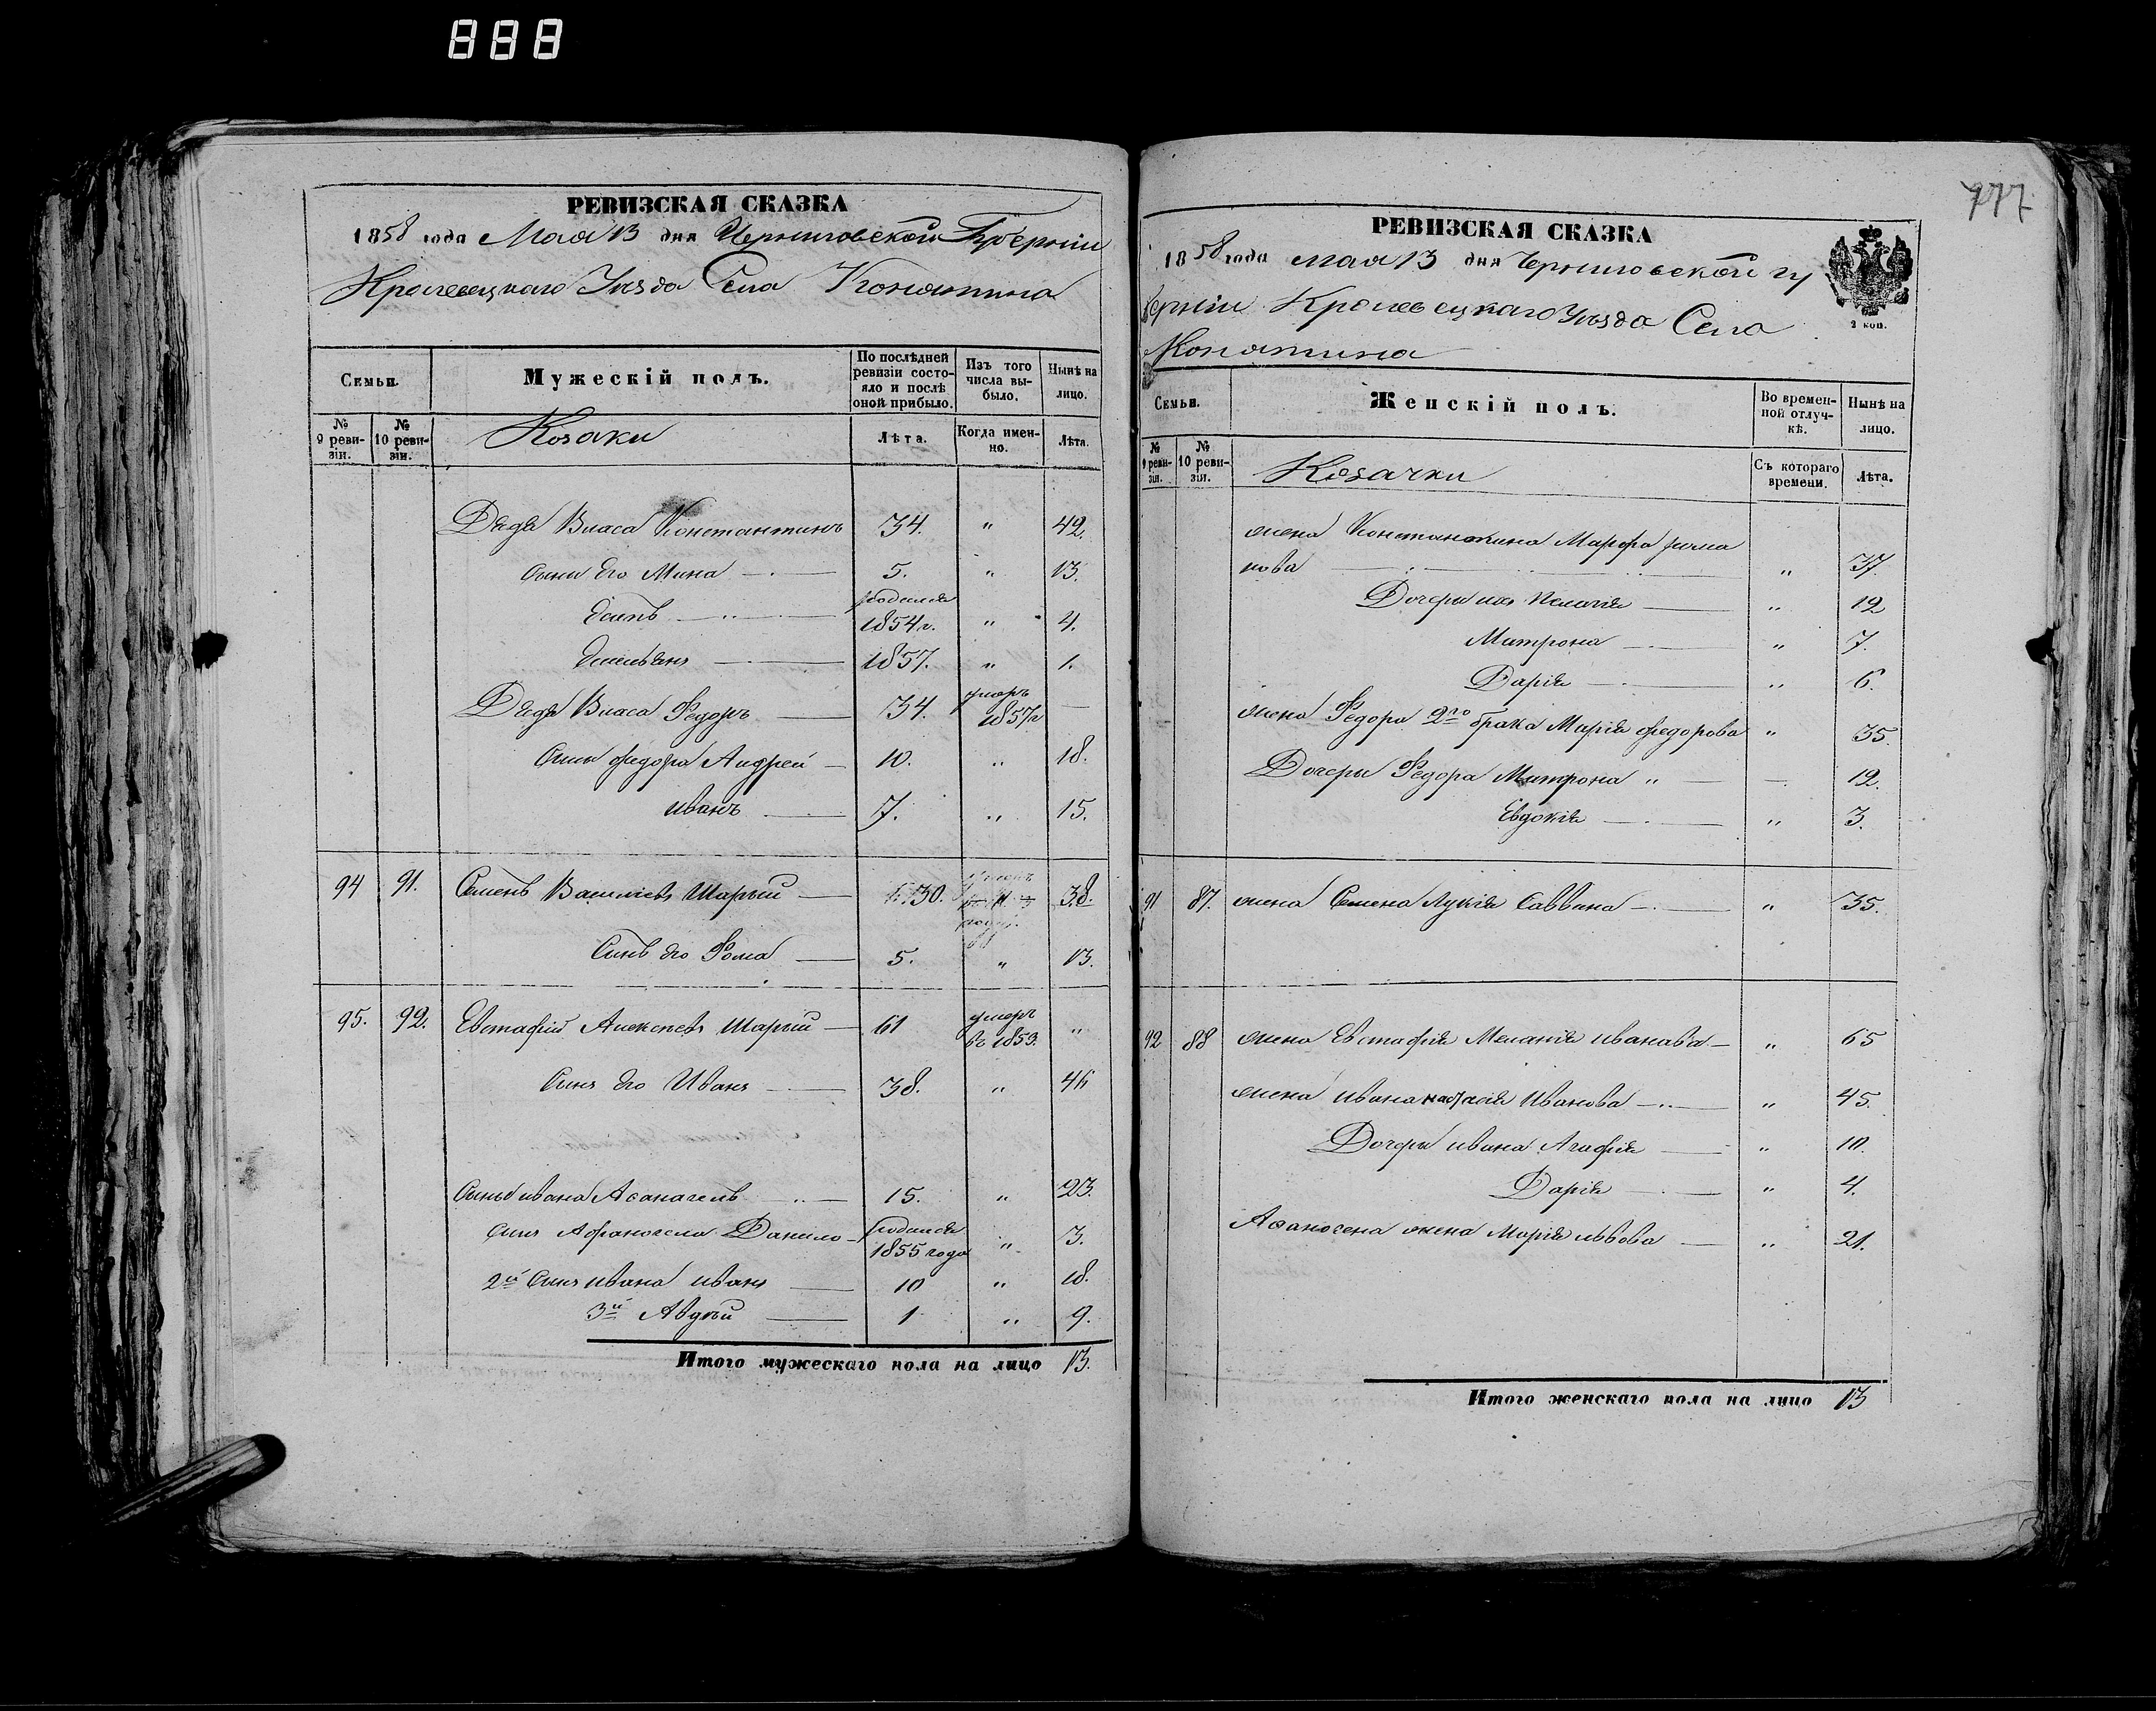 888
РЕВИЗСКАЯ СКАЗКА
1858 года Мая 13 дня Черниговской Губерніи
Кролевецкаго Уезда Села Конятина
Семьи.
Мужескій полъ.
По послѣдней ревизіи состояло и послѣ оной прибыло.
Изъ того числа выбыло.
Нынѣ на лицо.
№ 9 ревизіи.
№ 10 ревизіи.
Козаки
Лѣта.
Когда именно.
Лѣта.
Дядя Власа Константинъ 34. " 42.
Сыны его Мина 5. " 13.
родился
1854 г. " 4.
Емельянъ 1857. " 1.
Дядя Власа Федоръ 34. умеръ 1857 г —
Сыны федора Андрей 10. " 18.
иванъ 7. " 15.
94 91. Семенъ Васильевъ Шарый 30. 38.
Сынъ его Фома 5. " 13.
95. 92. Евстафій Алексеевъ Шарый 61 умеръ въ 1853. "
Сынъ его Иванъ 38. " 46
Сыны ивана 15. " 23.
Сынъ Данило родился 1855 года " 3.
2й Сынъ ивана иванъ 10 " 18.
3й Авдѣй 1 " 9.
Итого мужескаго пола на лицо 13.
777
РЕВИЗСКАЯ СКАЗКА
1858 года мая 13 дня Черниговской гу
берніи Кролевецкаго Уезда Села
Конятина
2 коп.
Семьи.
Женскій полъ.
Во временной отлучкѣ.
Нынѣ на лицо.
№ 9 ревизіи.
№ 10 ревизіи.
Козачки
Съ котораго времени.
Лѣта.
жена Константина Марфа
нова " 37.
Дочеры ихъ Пелагія " 12
Митрона " 7.
Дарія " 6.
жена Федора 2го брака Марія федорова " 35.
Дочеры Федора Митрона " — 12.
Евдокія " 3.
91 87. жена Семена Лукія Саввина " 35.
92 88 жена Евстафія Меланія иванова " 65
жена ивана настасія Иванова " 45.
Дочеры ивана Агафія " 10.
Дарія " 4.
жена Марія львова " 21.
Итого женскаго пола на лицо 13